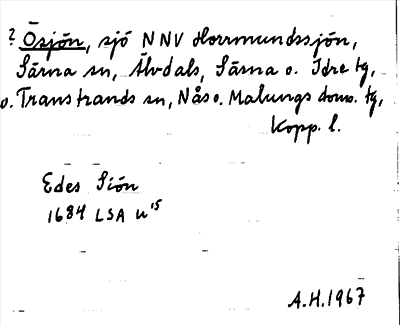 ? Ösjön, sjö NNV Horrmundssjön,
Särna sn, Älvdals, Särna o. Idre tg,
o. Transtrands sn, Nås o. Malungs doms. tg,
Kopp. l.
Edes Siön
1684 LSA u¹⁵
A.H. 1967